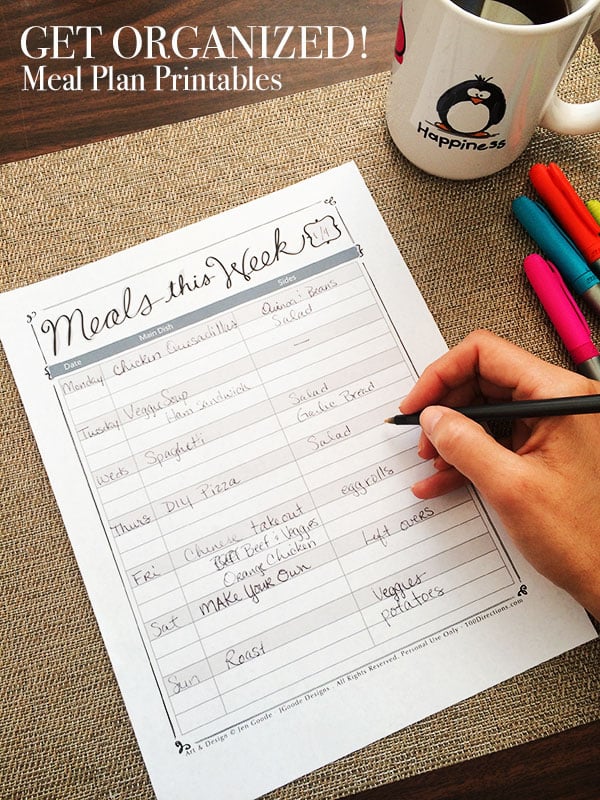 GET ORGANIZED!
Meal Plan Printables
Happiness
Meals this Week
Date Main Dish Sides
Monday Chicken Quesadillas Quinoa & Beans
Salad
Tuesday Veggie Soup —
Ham Sandwich
Weds Spaghetti Salad
Garlic Bread
Thurs DIY Pizza Salad
Fri Chinese takeout eggrolls
Beef & Veggies
Orange Chicken
Sat MAKE Your Own Left overs
Sun Roast Veggies
potatoes
Art & Design © Jen Goode JGoode Designs . All Rights Reserved. Personal Use Only . 100Directions.com